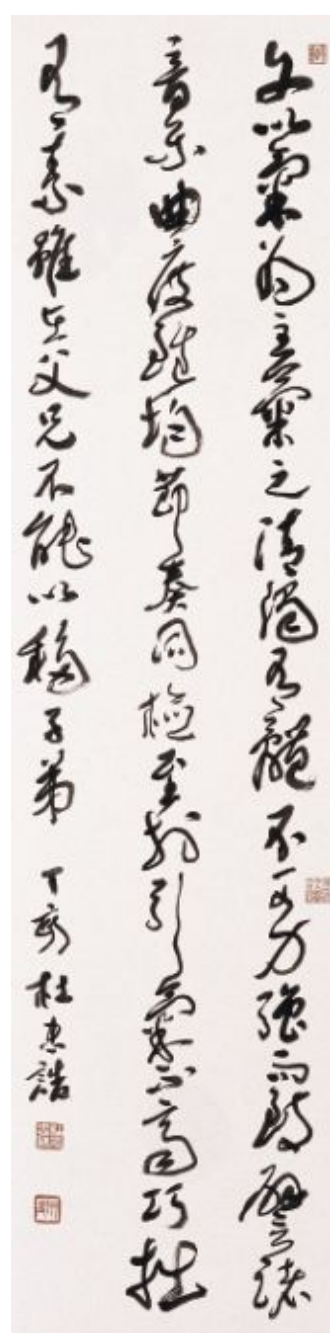 文以氣為主氣之清濁有體不可力強而致譬諸
音樂曲度雖均節奏同檢至於引氣不齊巧拙
有素雖在父兄不能以移子弟 丁亥 杜忠誥